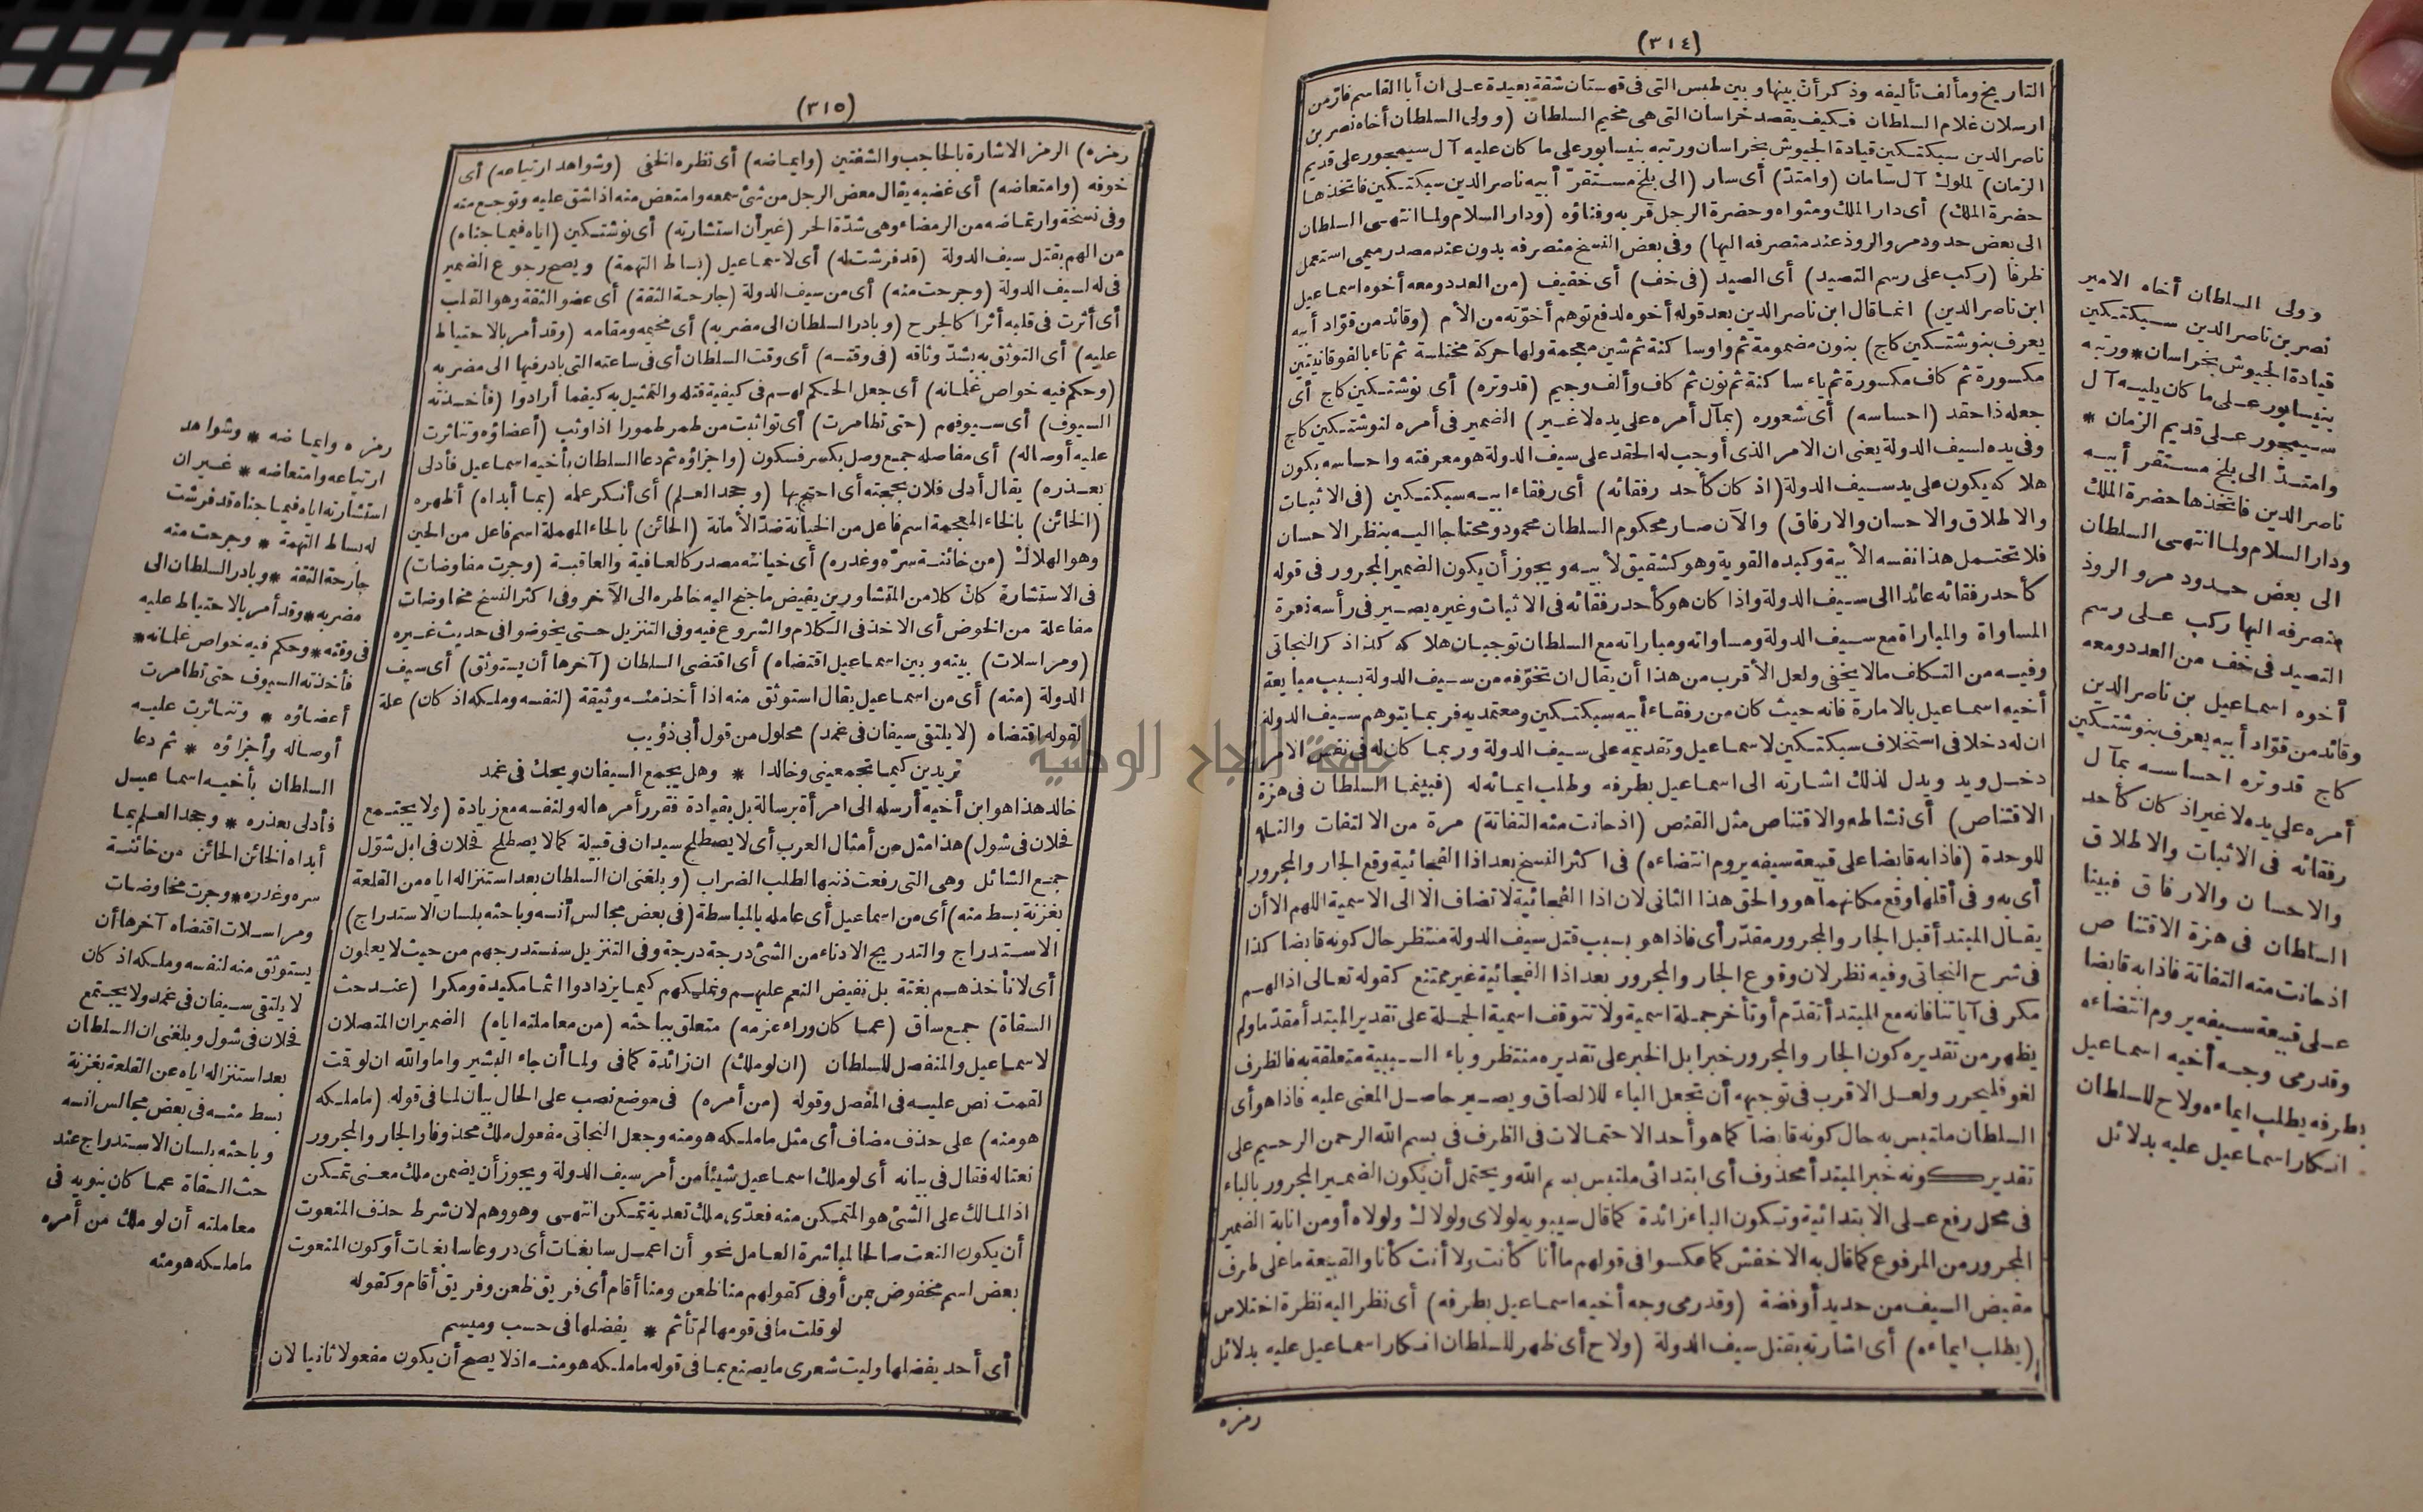 (٣١٤)
التاريخ ومألف تأليفه وذكر أن بينها وبين طبس التى فى قهستان شقة بعيدة على ان أبا القاسم فارّ من
ارسلان غلام السلطان فكيف يقصد خراسان التى هى مخيم السلطان (وولى السلطان أخاه نصر بن
ناصر الدين سبكتكين قيادة الجيوش بخراسان ورتبه بنيسابور على ما كان عليه آل سيمجور على قديم
الزمان) لملوك آل سامان (وامتدّ) أى سار (الى بلخ مستقرّ أبيه ناصر الدين سبكتكين فاتخذها
حضرة الملك) أى دار الملك ومثواه وحضرة الرجل قربه وفناؤه (ودار السلام ولما انتهى السلطان
الى بعض حدود مرو الروذ عند منصرفه اليها) وفى بعض النسخ منصرفه بدون عند مصدر ميمى استعمل
ظرفا (ركب على رسم التصيد) أى الصيد (فى خف) أى خفيف (من العدد ومعه أخوه اسماعيل
ابن ناصر الدين) انما قال ابن ناصر الدين بعد قوله أخوه لدفع توهم أخوّته من الأم (وقائد من قوّاد أبيه
يعرف بنوشتكين كاج) بنون مضمومة ثم واو ساكنة ثم شين معجمة ولها حركة مختلسة ثم تاء بالفوقانيتين
مكسورة ثم كاف مكسورة ثم ياء ساكنة ثم نون ثم كاف وألف وجيم (قدوتره) أى نوشتكين كاج أى
جعله ذا حقد (احساسه) أى شعوره (بمآل أمره على يده لا غير) الضمير فى أمره لنوشتكين كاج
وفى يده لسيف الدولة يعنى ان الامر الذى أوجب له الحقد على سيف الدولة هو معرفته واحساسه بكون
هلاكه يكون على يد سيف الدولة (اذ كان كأحد رفقائه) أى رفقاء ابيه سبكتكين (فى الاثبات
والاطلاق والاحسان والارفاق) والآن صار محكوم السلطان محمود ومحتاجا اليه بنظر الاحسان
فلا تحتمل هذا نفسه الأبية وكبده القوية وهو كشقيق لأبيه ويجوز أن يكون الضمير المجرور فى قوله
كأحد رفقائه عائدا الى سيف الدولة واذا كان هو كأحد رفقائه فى الاثبات وغيره يصير فى رأسه نعرة
المساواة والمباراة مع سيف الدولة ومساواته ومباراته مع السلطان توجبان هلاكه كذا ذكر النجاتى
وفيه من التكلف مالا يخفى ولعل الأقرب من هذا أن يقال ان تخوّفه من سيف الدولة بسبب مبايعة
أخيه اسماعيل بالامارة فانه حيث كان من رفقاء أبيه سبكتكين ومعتمديه فربما يتوهم سيف الدولة
ان له دخلا فى استخلاف سبكتكين لاسماعيل وتقديمه على سيف الدولة وربما كان له فى نفس الامر
دخل ويد ويدل لذلك اشارته الى اسماعيل بطرفه وطلب ايمائه له (فبينما السلطان فى هزة
الاقتناص) أى نشاطه والاقتناص مثل القنص (اذ حانت منه التفاتة) مرة من الالتفات والتاء
للوحدة (فاذا به قابضا على قبيعة سيفه يروم انتضاءه) فى اكثر النسخ بعد اذا الفجائية وقع الجار والمجرور
أى به وفى أقلها وقع مكانهما هو والحق هذا الثانى لان اذا الفجائية لا تضاف الا الى الاسمية اللهم الا أن
يقال المبتدأ قبل الجار والمجرور مقدّر أى فاذا هو بسبب قتل سيف الدولة منتظر حال كونه قابضا كذا
فى شرح النجاتى وفيه نظر لان وقوع الجار والمجرور بعد اذا الفجائية غير ممتنع كقوله تعالى اذا لهم
مكر فى آياتنا فانه مع المبتدأ تقدّم أو تأخر جملة اسمية ولا تتوقف اسمية الجملة على تقدير المبتدأ مقدّما ولم
يظهر من تقديره كون الجار والمجرور خبرا بل الخبر على تقديره منتظر وباء السببية متعلقة به فالظرف
لغو فليحرر ولعل الاقرب فى توجيهه أن تجعل الباء للالصاق ويصير حاصل المغنى عليه فاذا هو أى
السلطان ملتبس به حال كونه قابضا كما هو أحد الاحتمالات فى الظرف فى بسم الله الرحمن الرحيم على
تقدير كونه خبرا لمبتدأ محذوف أى ابتدائى ملتبس بسم الله ويحتمل أن يكون الضمير المجرور بالباء
فى محل رفع على الابتدائية وتكون الباء زائدة كما قال سيبويه لولاى ولولاك ولولاه أو من انابة الضمير
المجرور من المرفوع كما قال به الاخفش كما عكسوا فى قولهم ما أنا كأنت ولا أنت كأنا والقبيعة ما على طرف
مقبض السيف من حديد أو فضة (وقد رمى وجه أخيه اسماعيل بطرفه) أى نظر اليه نظرة اختلاس
(يطلب ايماءه) أى اشارته بقتل سيف الدولة (ولاح أى ظهر للسلطان انكار اسماعيل عليه بدلائل
رمزه
وولى السلطان أخاه الامير
نصر بن ناصر الدين سبكتكين
قيادة الجيوش بخراسان * ورتبه
بنيسابور على ما كان يليه آل
سيمجور على قديم الزمان *
وامتدّ الى بلخ مستقر أبيه
ناصر الدين فاتخذها حضرة الملك
ودار السلام ولما انتهى السلطان
الى بعض حدود مرو الروذ
منصرفه اليها ركب على رسم
التصيد فى خف من العدد ومعه
أخوه اسماعيل بن ناصر الدين
وقائد من قوّاد أبيه يعرف بنوشتكين
كاج قدوتره احساسه بمآل
أمره على يده لا غير اذ كان كأحد
رفقائه فى الاثبات والاطلاق
والاحسان والارفاق فبينا
السلطان فى هزة الاقتناص
اذ حانت منه التفاتة فاذا به قابضا
على قبيعة سيفه يروم انتضاءه
وقد رمى وجه أخيه اسماعيل
بطرفه يطلب ايماءه ولاح للسلطان
انكار اسماعيل عليه بدلائل
(٣١٥)
رمزه) الرمز الاشارة بالحاجب والشفتين (وايماضه) أى نظره الخفى (وشواهد ارتياعه) أى
خوفه (وامتعاضه) أى غضبه يقال معض الرجل من شئ سمعه وامتعض منه اذا شق عليه وتوجع منه
وفى نسخة وارتماضه من الرمضاء وهى شدّة الحر (غير أن استشارته) أى نوشتكين (اياه فيما جناه)
من الهم بقتل سيف الدولة (قد فرشت له) أى لاسماعيل (بساط التهمة) ويصح رجوع الضمير
فى له لسيف الدولة (وجرحت منه) أى من سيف الدولة (جارحة الثقة) أى عضو الثقة وهو القلب
أى أثرت فى قلبه أثرا كالجرح (وبادر السلطان الى مضربه) أى مخيمه ومقامه (وقد أمر بالاحتياط
عليه) أى التوثق به بشدّ وثاقه (فى وقته) أى وقت السلطان أى فى ساعته التى بادر فيها الى مضربه
(وحكم فيه خواص غلمانه) أى جعل الحكم لهم فى كيفية قتله والتمثيل به كيفما أرادوا (فأخذته
السيوف) أى سيوفهم (حتى تطامرت) أى تواثبت من طمر طمورا اذا وثب (أعضاؤه وتناثرت
عليه أوصاله) أى مفاصله جمع وصل بكسر فسكون (واجزاؤه ثم دعا السلطان بأخيه اسماعيل فأدلى
بعذره) يقال أدلى فلان بحجته أى احتج بها (وجحد العلم) أى أنكر علمه (بما أبداه) أظهره
(الخائن) بالخاء المعجمة اسم فاعل من الخيانة ضدّ الأمانة (الحائن) بالحاء المهملة اسم فاعل من الحين
وهو الهلاك (من خائنة سرّه وغدره) أى خيانته مصدر كالعافية والعاقبة (وجرت مفاوضات)
فى الاستشارة كانّ كلا من المتشاورين يفيض ما جنح اليه خاطره الى الآخر وفى اكثر النسخ مخاوضات
مفاعلة من الخوض أى الاخذ فى الكلام والشروع فيه وفى التنزيل حتى يخوضوا فى حديث غيره
(ومراسلات) بينه وبين اسماعيل اقتضاه) أى اقتضى السلطان (آخرها أن يستوثق) أى سيف
الدولة (منه) أى من اسماعيل يقال استوثق منه اذا أخذ منه وثيقة (لنفسه وملكه اذ كان) علة
لقوله اقتضاه (لا يلتقى سيفان فى غمد) محلول من قول أبى ذؤيب
تريدين كيما تجمعينى وخالدا * وهل يجمع السيفان ويحك فى غمد
خالد هذا هو ابن أخيه أرسله الى امرأة برسالة بل بقيادة فقرر أمرها له ولنفسه مع زيادة (ولا يجتمع
فحلان فى شول) هذا مثل من أمثال العرب أى لا يصطلح سيدان فى قبيلة كما لا يصطلح فحلان فى ابل شوّل
جمع الشائل وهى التى رفعت ذنبها لطلب الضراب (وبلغنى ان السلطان بعد استنزاله اياه من القلعة
بغزنة بسط منه) أى من اسماعيل أى عامله بالمباسطة (فى بعض مجالس أنسه وباحثه بلسان الاستدراج)
الاستدراج والتدريج الادناء من الشئ درجة درجة وفى التنزيل سنستدرجهم من حيث لا يعلمون
أى لا نأخذهم بغتة بل نفيض النعم عليهم ونمليكهم كيما يزدادوا اثما مكيدة ومكرا (عند حث
السقاة) جمع ساق (عما كان وراء عزمه) متعلق بباحثه (من معاملته اياه) الضميران المتصلان
لاسماعيل والمنفصل للسلطان (ان لو ملك) ان زائدة كما فى ولما أن جاء البشير واما والله ان لو قمت
لقمت نص عليه فى المفصل وقوله (من أمره) فى موضع نصب على الحال بيان لما فى قوله (ما ملكه
هو منه) على حذف مضاف أى مثل ما ملكه هو منه وجعل النجاتى مفعول ملك محذوفا والجار والمجرور
نعتا له فقال فى بيانه أى لو ملك اسماعيل شيئا من أمر سيف الدولة ويجوز أن يضمن ملك معنى تمكن
اذ المالك على الشئ هو المتمكن منه فعدّى ملك تعدية تمكن انتهى وهو وهم لان شرط حذف المنعوت
أن يكون النعت صالحا لمباشرة العامل نحو أن اعمل سابغات أى دروعا سابغات أو كون المنعوت
بعض اسم مخفوض بمن أو فى كقولهم منا ظعن ومنا أقام أى فريق ظعن وفريق أقام وكقوله
لو قلت ما فى قومها لم تأثم * يفضلها فى حسب وميسم
أى أحد يفضلها وليت شعرى ما يصنع بما فى قوله ما ملكه هو منه اذ لا يصح أن يكون مفعولا ثانيا لان
رمزه وايماضه * وشواهد
ارتياعه وامتعاضه * غير ان
استشارته اياه فيما جناه قد فرشت
له بساط التهمة * وجرحت منه
جارحة الثقة * وبادر السلطان الى
مضربه * وقد أمر بالاحتياط عليه
فى وقته * وحكم فيه خواص غلمانه *
فأخذته السيوف حتى تطامرت
أعضاؤه * وتناثرت عليه
أوصاله وأجزاؤه * ثم دعا
السلطان بأخيه اسماعيل
فأدلى بعذره * وجحد العلم بما
أبداه الخائن الحائن من خائنة
سره وغدره * وجرت مخاوضات
ومراسلات اقتضاه آخرها أن
يستوثق منه لنفسه وملكه اذ كان
لا يلتقى سيفان فى غمد ولا يجتمع
فحلان فى شول وبلغنى ان السلطان
بعد استنزاله اياه عن القلعة بغزنة
بسط منه فى بعض مجالس انسه
وباحثه بلسان الاستدراج عند
حث السقاة عما كان ينويه فى
معاملته أن لو ملك من أمره
ما ملكه هو منه
جامعة النجاح الوطنية